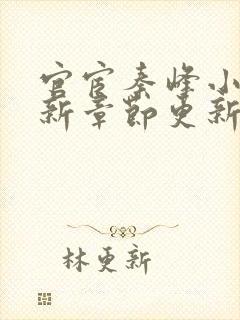 官宦秦峰小
新章节更新
林更新